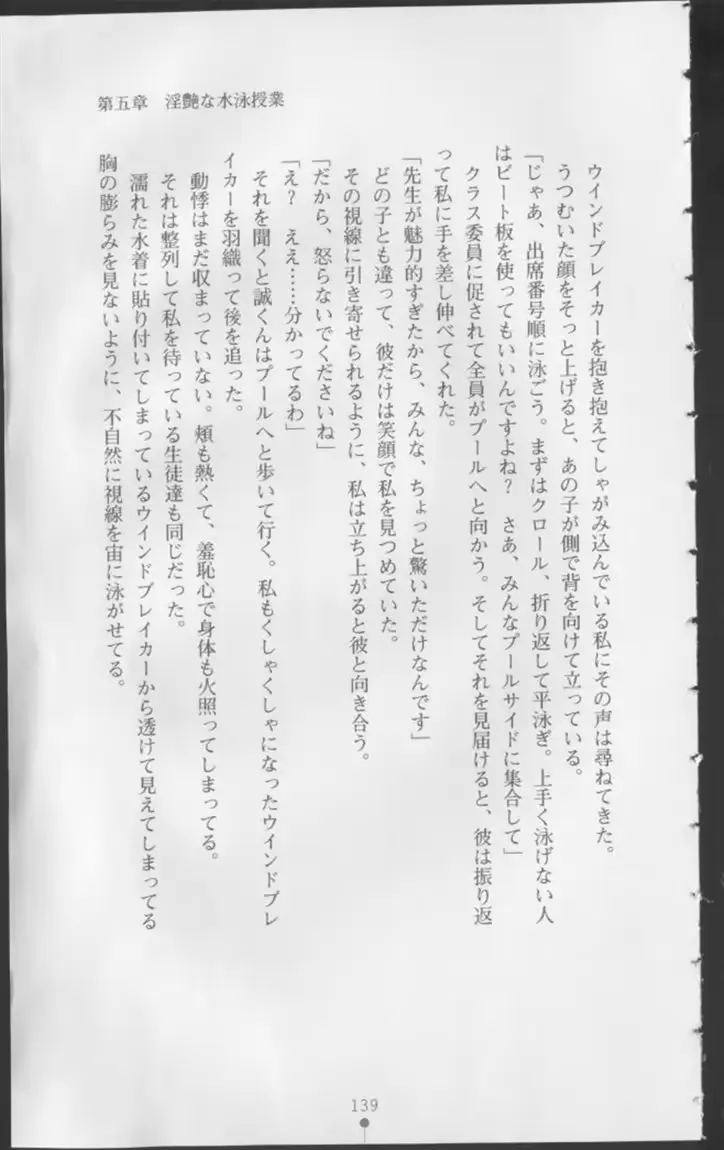 第五章　淫艶な水泳授業
ウインドブレイカーを抱き抱えてしゃがみ込んでいる私にその声は尋ねてきた。
うつむいた顔をそっと上げると、あの子が側で背を向けて立っている。
「じゃあ、出席番号順に泳ごう。まずはクロール、折り返して平泳ぎ。上手く泳げない人
はビート板を使ってもいいんですよね？　さあ、みんなプールサイドに集合して」
クラス委員に促されて全員がプールへと向かう。そしてそれを見届けると、彼は振り返
って私に手を差し伸べてくれた。
「先生が魅力的すぎたから、みんな、ちょっと驚いただけなんです」
どの子とも違って、彼だけは笑顔で私を見つめていた。
その視線に引き寄せられるように、私は立ち上がると彼と向き合う。
「だから、怒らないでくださいね」
「え？　ええ……分かってるわ」
それを聞くと誠くんはプールへと歩いて行く。私もくしゃくしゃになったウインドブレ
イカーを羽織って後を追った。
動悸はまだ収まっていない。頬も熱くて、羞恥心で身体も火照ってしまってる。
それは整列して私を待っている生徒達も同じだった。
濡れた水着に貼り付いてしまっているウインドブレイカーから透けて見えてしまってる
胸の膨らみを見ないように、不自然に視線を宙に泳がせてる。
139